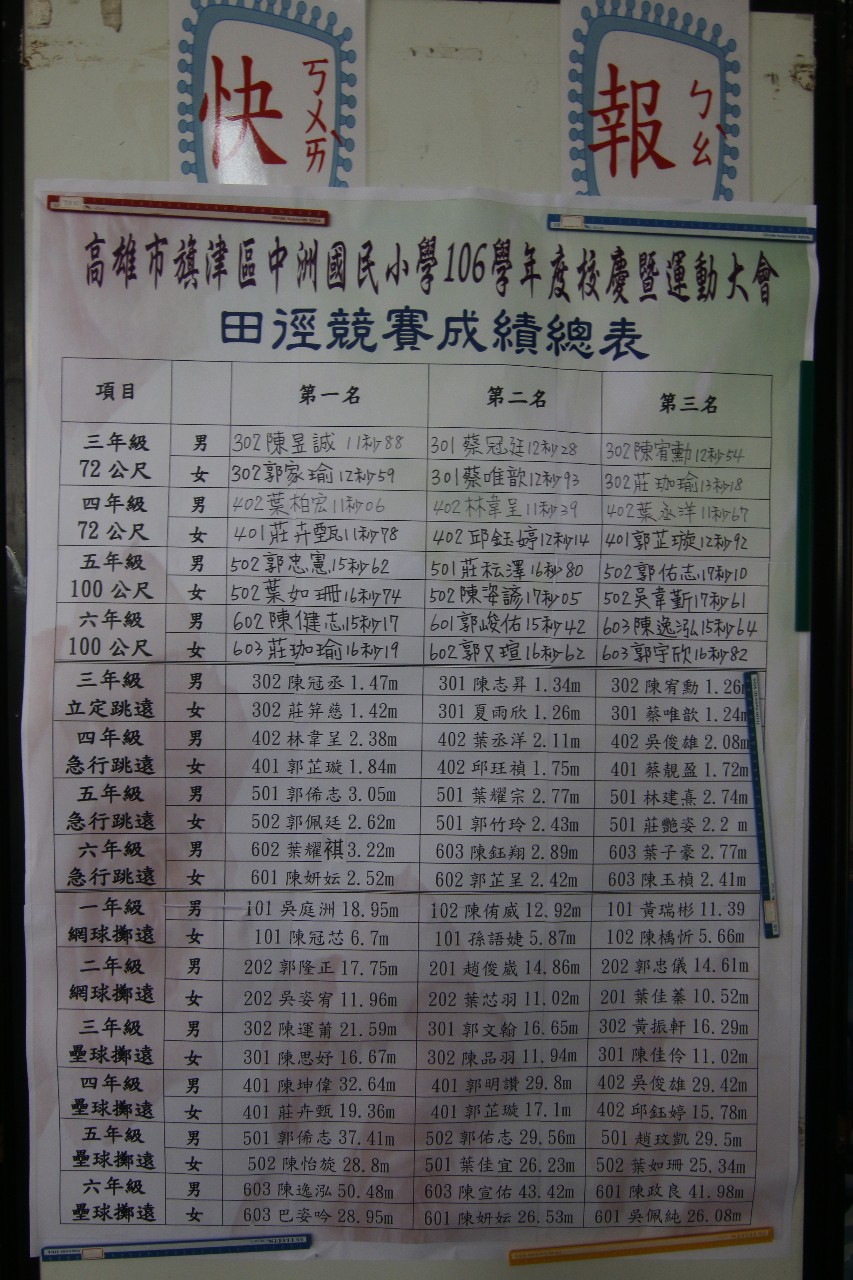 快 ㄎㄨㄞˋ 報 ㄅㄠˋ
高雄市旗津區中洲國民小學106學年度校慶暨運動大會
田徑競賽成績總表
項目 第一名 第二名 第三名
三年級 男 302陳昱誠 11秒88 301蔡冠廷12秒28 302陳宥勳12秒54
72公尺 女 302郭家瑜12秒59 301蔡唯歆12秒93 302莊珈瑜13秒18
四年級 男 402葉柏宏11秒06 402林韋呈11秒39 402葉丞洋11秒67
72公尺 女 401莊卉甄11秒78 402邱鈺婷12秒14 401郭芷璇12秒92
五年級 男 502郭忠憲15秒62 501莊秐澤16秒80 502郭佑志17秒10
100公尺 女 502葉如珊16秒74 502陳姿諺17秒05 502吳韋蓁17秒61
六年級 男 602陳健志15秒17 601郭峻佑15秒42 603陳逸泓15秒64
100公尺 女 603莊珈瑜16秒19 602郭又瑄16秒62 603郭宇欣16秒82
三年級 男 302 陳冠丞 1.47m 301 陳志昇 1.34m 302 陳宥勳 1.26
立定跳遠 女 302 莊笄慈 1.42m 301 夏雨欣 1.26m 301 蔡唯歆 1.24m
四年級 男 402 林韋呈 2.38m 402 葉丞洋 2.11m 402 吳俊雄 2.08m
急行跳遠 女 401 郭芷璇 1.84m 402 邱玨禎 1.75m 401 蔡靚盈 1.72m
五年級 男 501 郭俙志 3.05m 501 葉耀宗 2.77m 501 林建熹 2.74m
急行跳遠 女 502 郭佩廷 2.62m 501 郭竹玲 2.43m 501 莊艷姿 2.2 m
六年級 男 602 葉耀祺 3.22m 603 陳鈺翔 2.89m 603 葉子豪 2.77m
急行跳遠 女 601 陳妍妘 2.52m 602 郭芷呈 2.42m 603 陳玉楨 2.41m
一年級 男 101 吳庭洲 18.95m 102 陳侑威 12.92m 101 黃瑞彬 11.39
網球擲遠 女 101 陳冠芯 6.7m 101 孫語婕 5.87m 102 陳楀忻 5.66m
二年級 男 202 郭隆正 17.75m 201 趙俊崴 14.86m 202 郭忠儀 14.61m
網球擲遠 女 202 吳姿宥 11.96m 202 葉芯羽 11.02m 201 葉佳蓁 10.52m
三年級 男 302 陳運莆 21.59m 301 郭文翰 16.65m 302 黃振軒 16.29m
壘球擲遠 女 301 陳思妤 16.67m 302 陳品羽 11.94m 301 陳佳伶 11.02m
四年級 男 401 陳坤偉 32.64m 401 郭明讚 29.8m 402 吳俊雄 29.42m
壘球擲遠 女 401 莊卉甄 19.36m 401 郭芷璇 17.1m 402 邱鈺婷 15.78m
五年級 男 501 郭俙志 37.41m 502 郭佑志 29.56m 501 趙玟凱 29.5m
壘球擲遠 女 502 陳怡旋 28.8m 501 葉佳宜 26.23m 502 葉如珊 25.34m
六年級 男 603 陳逸泓 50.48m 603 陳宣佑 43.42m 601 陳政良 41.98m
壘球擲遠 女 603 巴姿吟 28.95m 601 陳妍妘 26.53m 601 吳佩純 26.08m